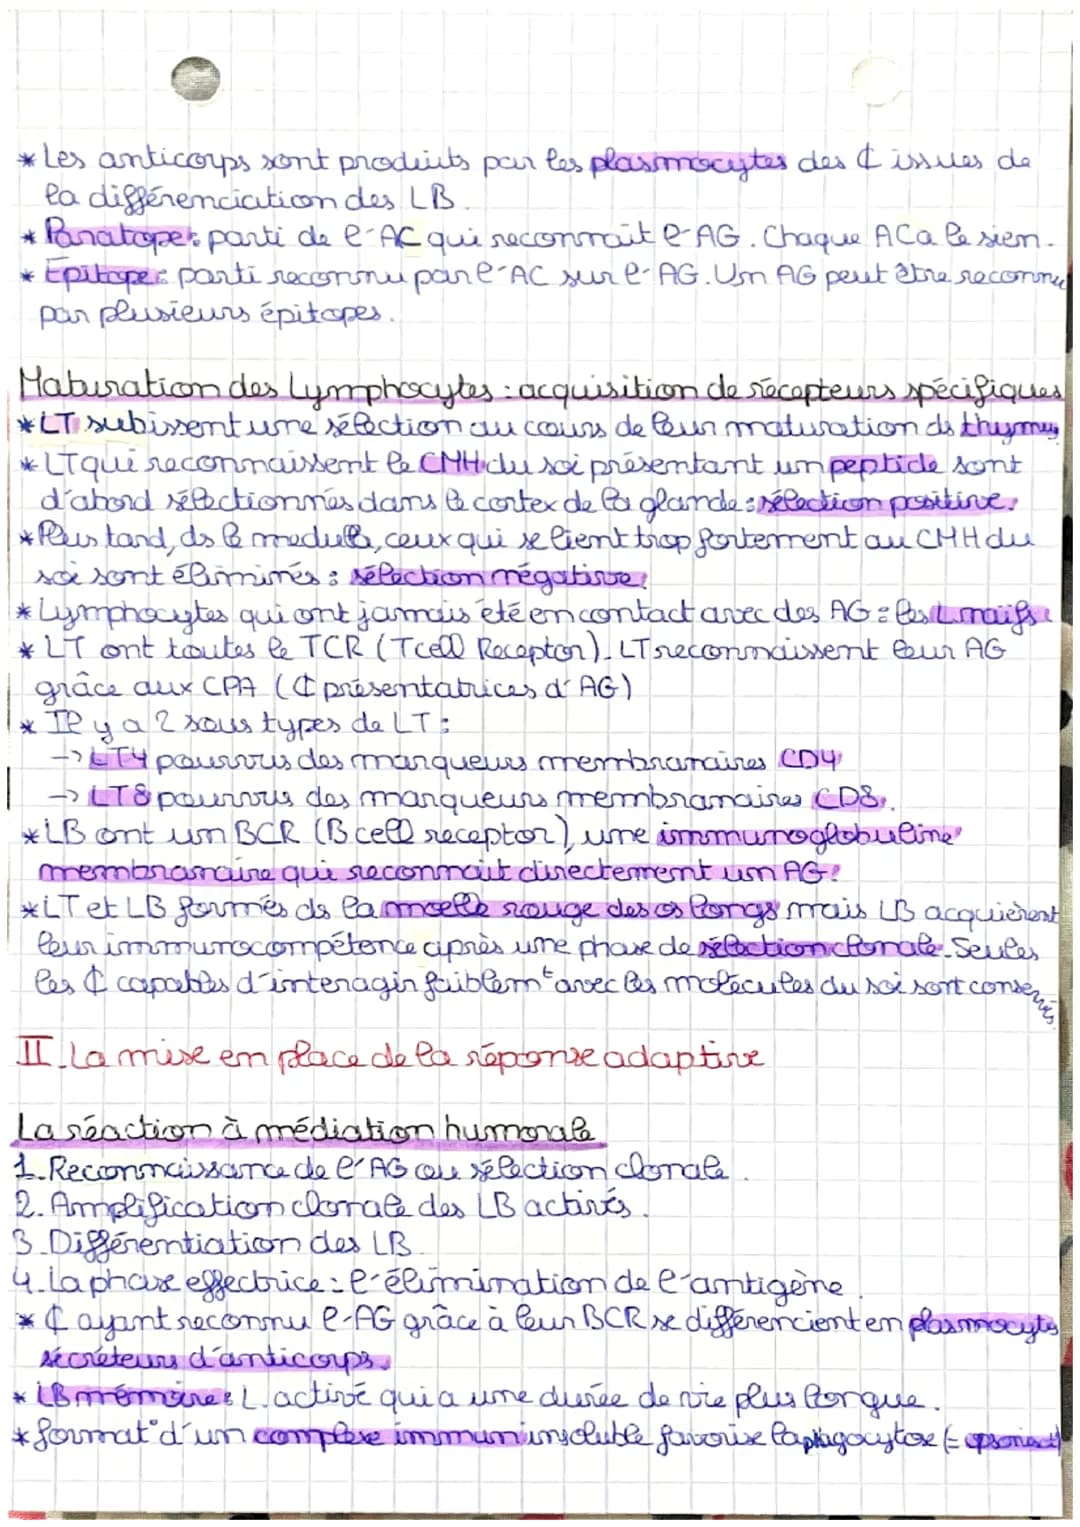 * Les anticorps sont produits par les plasmocytes des ₵ issues de
la différenciation des LB.
* Paratope : parti de l'AC qui reconnait l'AG. Chaque AC a le sien.
* Epitope : parti reconnu par l'AC sur l'AG. Un AG peut être reconnu
par plusieurs épitopes.
Maturation des Lymphocytes : acquisition de récepteurs spécifiques
* LT subissent une sélection au cours de leur maturation ds thymus
* LT qui reconnaissent le CMH du soi présentant un peptide sont
d'abord sélectionnés dans le cortex de la glande : sélection positive.
* Plus tard, ds la medulla, ceux qui se lient trop fortement au CMH du
soi sont éliminés : sélection négative.
* Lymphocytes qui ont jamais été en contact avec des AG = les L naïfs
* LT ont toutes le TCR (T cell Receptor). LT reconnaissent leur AG
grâce aux CPA (₵ présentatrices d'AG)
* Il y a 2 sous types de LT :
-> LT4 pourvus des marqueurs membranaires CD4
-> LT8 pourvus des marqueurs membranaires CD8.
* LB ont un BCR (B cell receptor), une immunoglobuline
membranaire qui reconnait directement un AG.
* LT et LB formés ds la moelle rouge des os longs mais LB acquièrent
leur immunocompétence après une phase de sélection clonale. Seules
les ₵ capables d'interagir faiblemt avec les molécules du soi sont conservés.
II. La mise en place de la réponse adaptive
La réaction à médiation humorale
1. Reconnaissance de l'AG ou sélection clonale.
2. Amplification clonale des LB activés.
3. Différentiation des LB
4. La phase effectrice : l'élimination de l'antigène.
* ₵ ayant reconnu l'AG grâce à leur BCR se différencient en plasmocyts
sécréteurs d'anticorps.
* LB mémoire : L. activé qui a une durée de vie plus longue.
* format° d'un complexe immun insoluble favorise la phagocytose (=